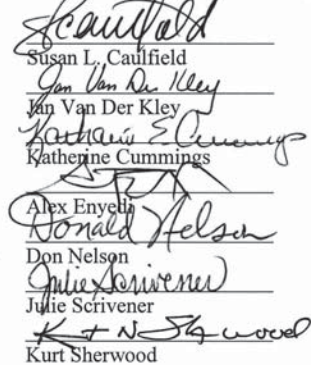 SCaulfield
Susan L. Caulfield
Jan Van Der Kley
Jan Van Der Kley
Katharine E Cummings
Katherine Cummings
Alex Enyedi
Donald Nelson
Don Nelson
Julie Scrivener
Julie Scrivener
Kurt N Sherwood
Kurt Sherwood